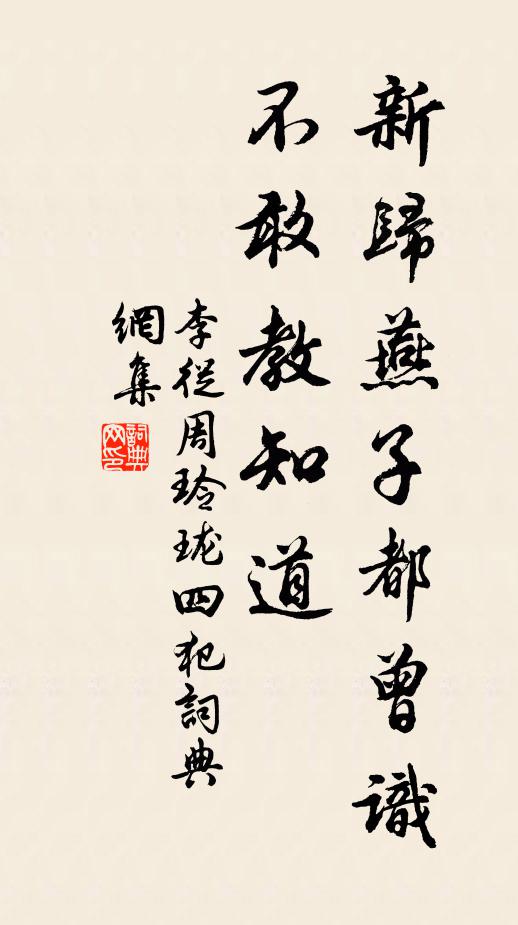 新歸燕子都曾識
不敢教知道
李從周玲瓏四犯詞典
網集
詞典
网印